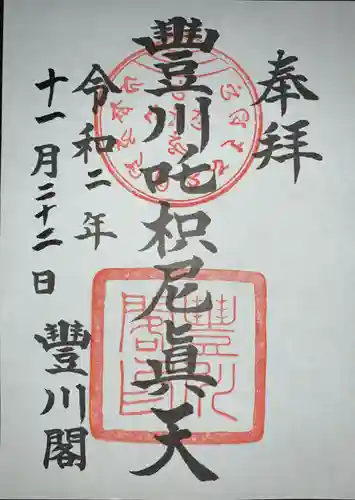 奉拝
豐川吒枳尼眞天
令和二年
十一月二十二日
豐川閣